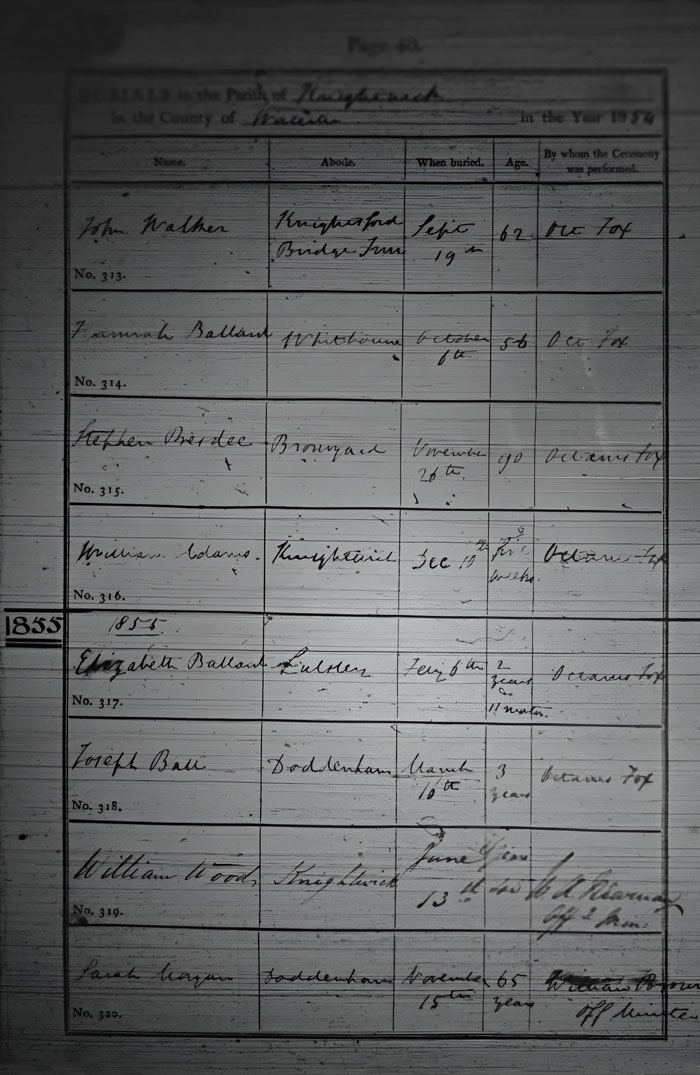 Page 40.
BURIALS in the Parish of Knightwick
in the County of Worcester in the Year 1854
Name. Abode. When buried. Age. By whom the Ceremony was performed.
John Walker Knightsford Sept 62 Oct Fox
Bridge Inn 19th
No. 313.
Hannah Ballard Whitbourne October 56 Oct Fox
6th
No. 314.
Stephen Bromyard November 90 Octavius Fox
26th
No. 315.
William Adams. Knightwick Dec 10th five Octavius Fox
weeks
No. 316.
1855 1855
Elizabeth Ballard Lulsley Feby 6th 2 Octavius Fox
years
11 months.
No. 317.
Joseph Ball Doddenham March 3 Octavius Fox
16th years
No. 318.
William Woods Knightwick June
13th
Off Min:
No. 319.
Sarah Morgan Doddenham November 65 William
15th years Off Minister
No. 320.